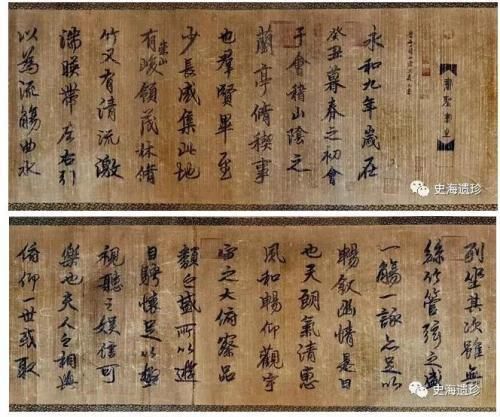 永和九年歲在
癸丑暮春之初會
于會稽山陰之
蘭亭脩稧事
也群賢畢至
少長咸集此地
有崇山峻領茂林脩
竹又有清流激
湍暎帶左右引
以為流觴曲水
史海遗珍
列坐其次雖無
絲竹管弦之盛
一觴一詠亦足以
暢敘幽情是日
也天朗氣清惠
風和暢仰觀宇
宙之大俯察品
類之盛所以遊
目騁懷足以極
視聽之娛信可
樂也夫人之相與
俯仰一世或取
史海遗珍